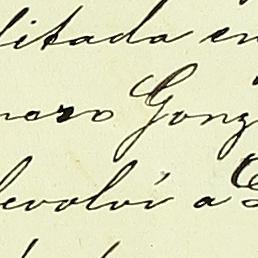 litada en
nero Gonz
devolví a